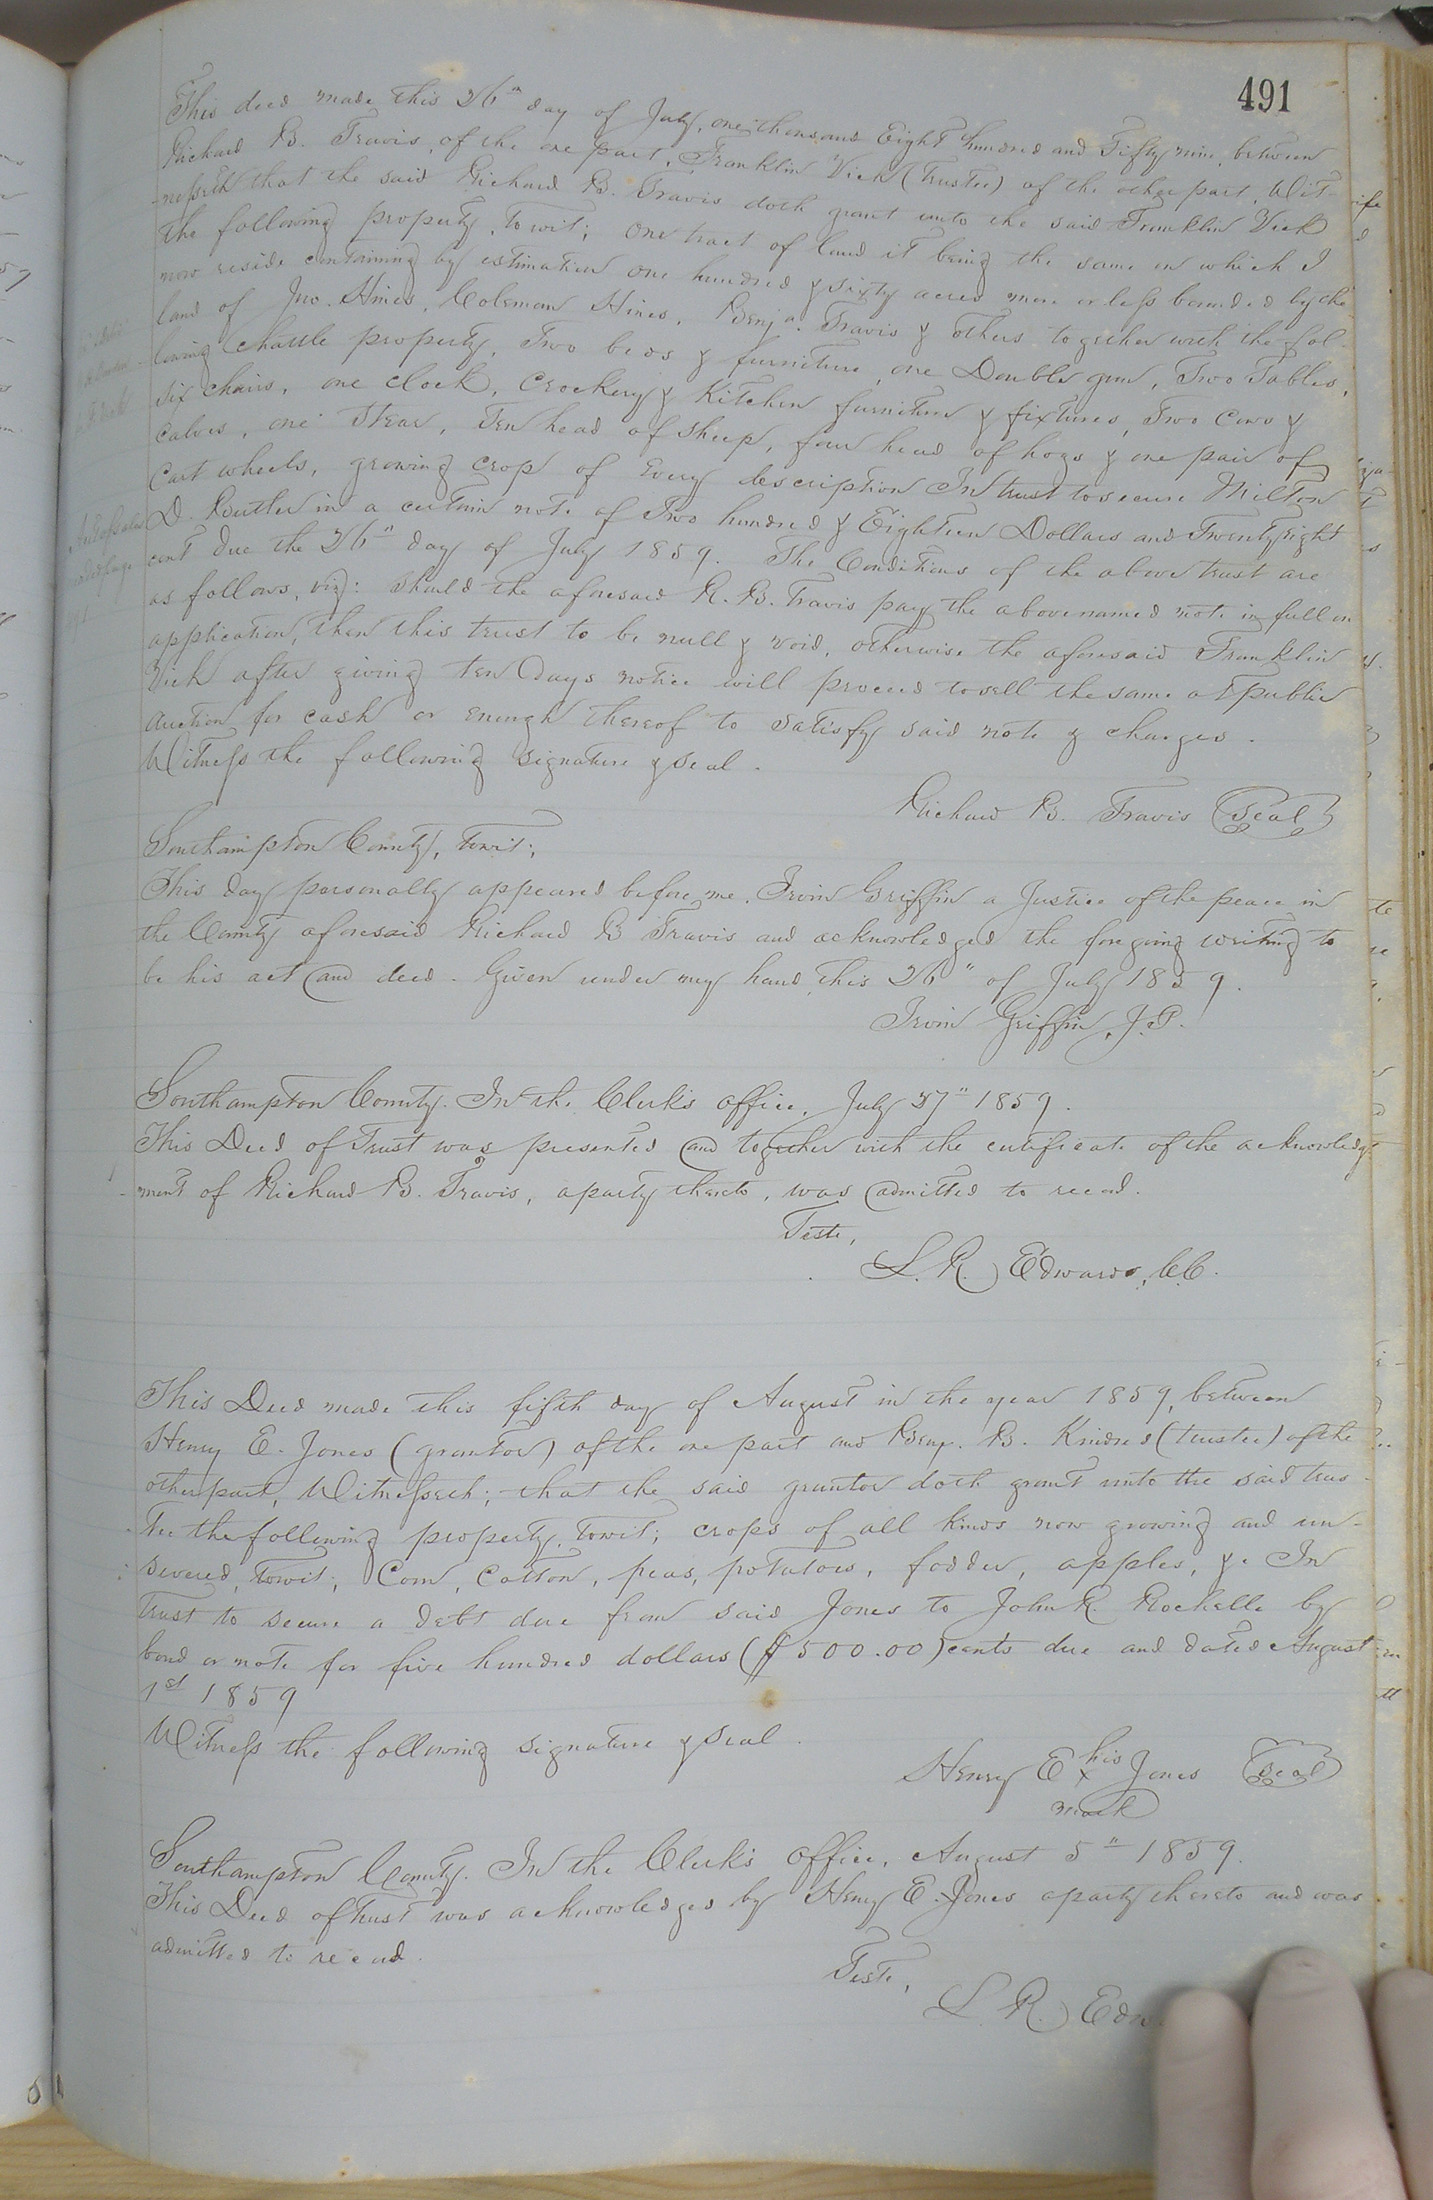 491
This deed made this 26" day of July, one thousand Eight hundred and Fifty nine, between
Richard B. Travis, of the one part, Franklin Vick (Trustee) of the other part, Wit-
-nesseth that the said Richard B. Travis doth grant unto the said Franklin Vick
the following property, to wit; One tract of land it being the same on which I
now reside containing by estimation one hundred & sixty acres more or less bounded by the
land of Jno. Hines, Coleman Hines, Benja. Travis & others together with the fol-
-lowing chattle property, Two beds & furniture, one Double gun, Two Tables,
six chairs, one clock, Crockery & Kitchen furniture & fixtures, Two Cows &
Calves, one Stear, Ten head of sheep, four head of hogs & one pair of
Cart wheels, growing crop of Every description In trust to secure Milton
D. Butler in a certain note of Two hundred & Eighteen Dollars and Twenty eight
cent due the 26" day of July 1859. The Conditions of the above trust are
as follows, viz: should the aforesaid R. B. Travis pay the above named note in full on
application, then this trust to be null & void, otherwise the aforesaid Franklin
Vick after giving ten days notice will proceed to sell the same at public
auction for cash or enough thereof to satisfy said note & charges.
Witness the following signature & seal.
Richard B. Travis Seal
Southampton County, Towit;
This day personally appeared before me, Irvin Griffin a Justice of the peace in
the County aforesaid Richard B Travis and acknowledged the forgoing writing to
be his act and deed. Given under my hand this 26" of July 1859.
Irvin Griffin, J.P.
Southampton County. In the Clerk's office, July 27" 1859.
This Deed of Trust was presented and together with the certificate of the acknowledg-
-ment of Richard B. Travis, a party thereto, was admitted to record.
Teste,
L. R. Edwards, C.C.
This Deed made this fifth day of August in the year 1859, between
Henry E. Jones (grantor) of the one part and Benj. B. Kindred (trustee) of the
other part, Witnesseth; that the said grantor doth grant unto the said trus-
tee the following property, towit; crops of all kinds now growing and un-
severed, towit; Corn, Cotton, peas, potatoes, fodder, apples, &c In
Trust to secure a debt due from said Jones to John R. Rochelle by
bond or note for five hundred dollars ($500.00) cents due and dated August
1st 1859
Witness the following signature & seal.
his
Henry E x Jones Seal
mark
Southampton County. In the Clerk's office, August 5" 1859.
This Deed of trust was acknowledged by Henry E. Jones a party thereto and was
admitted to record.
Teste,
L. R. Edw